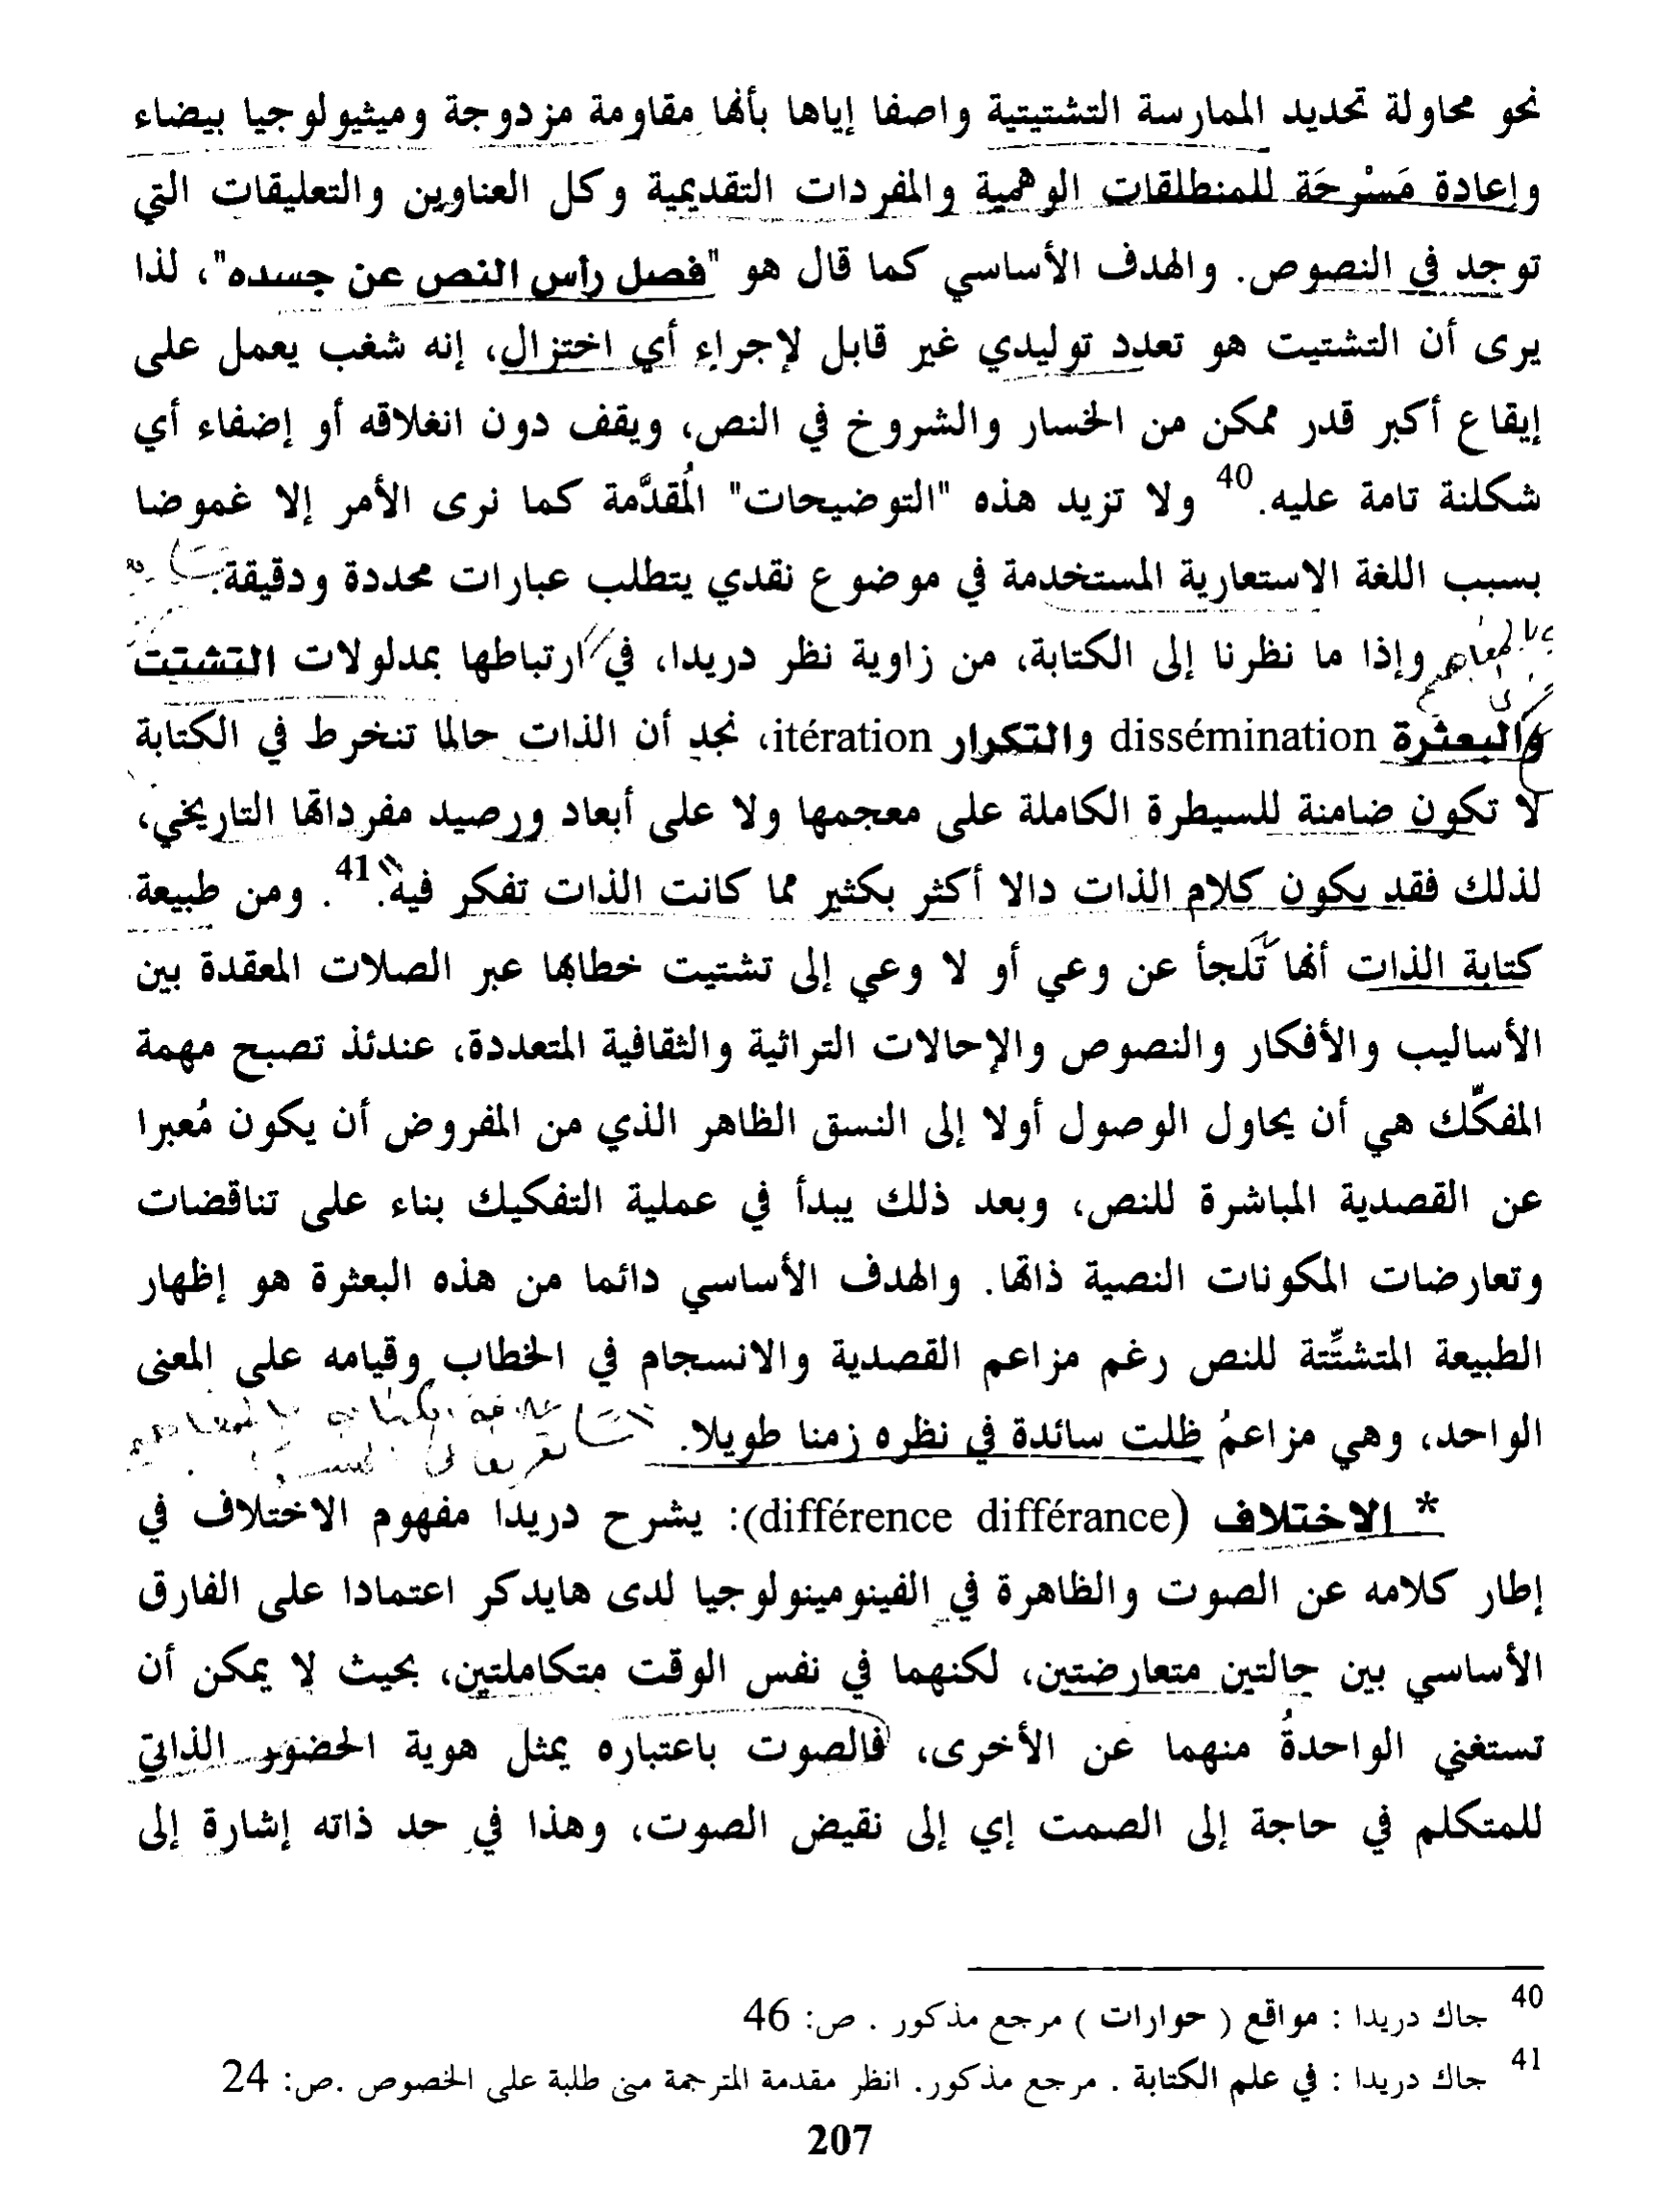 نحو محاولة تحديد الممارسة التشتيتية واصفا إياها بأنها مقاومة مزدوجة وميثيولوجيا بيضاء
وإعادة مَسْرحَة للمنطلقات الوهمية والمفردات التقديمية وكل العناوين والتعليقات التي
توجد في النصوص. والهدف الأساسي كما قال هو "فصل رأس النص عن جسده"، لذا
يرى أن التشتيت هو تعدد توليدي غير قابل لإجراء أي اختزال، إنه شغب يعمل على
إيقاع أكبر قدر ممكن من الخسار والشروخ في النص، ويقف دون انغلاقه أو إضفاء أي
شكلنة تامة عليه.40 ولا تزيد هذه "التوضيحات" المُقدَّمة كما نرى الأمر إلا غموضا
بسبب اللغة الاستعارية المستخدمة في موضوع نقدي يتطلب عبارات محددة ودقيقة.
وإذا ما نظرنا إلى الكتابة، من زاوية نظر دريدا، في ارتباطها بمدلولات التشتت
والبعثرة dissémination والتكرار itération، نجد أن الذات حالما تنخرط في الكتابة
لا تكون ضامنة للسيطرة الكاملة على معجمها ولا على أبعاد ورصيد مفرداتها التاريخي،
لذلك فقد يكون كلام الذات دالا أكثر بكثير مما كانت الذات تفكر فيه.41. ومن طبيعة
كتابة الذات أنها تَلجأ عن وعي أو لا وعي إلى تشتيت خطابها عبر الصلات المعقدة بين
الأساليب والأفكار والنصوص والإحالات التراثية والثقافية المتعددة، عندئذ تصبح مهمة
المفكّك هي أن يحاول الوصول أولا إلى النسق الظاهر الذي من المفروض أن يكون مُعبرا
عن القصدية المباشرة للنص، وبعد ذلك يبدأ في عملية التفكيك بناء على تناقضات
وتعارضات المكونات النصية ذاتها. والهدف الأساسي دائما من هذه البعثرة هو إظهار
الطبيعة المتشتِّتة للنص رغم مزاعم القصدية والانسجام في الخطاب وقيامه على المعنى
الواحد، وهي مزاعمُ ظلت سائدة في نظره زمنا طويلا.
* الاختلاف (différence différance): يشرح دريدا مفهوم الاختلاف في
إطار كلامه عن الصوت والظاهرة في الفينومينولوجيا لدى هايدكر اعتمادا على الفارق
الأساسي بين حالتين متعارضتين، لكنهما في نفس الوقت متكاملتين، بحيث لا يمكن أن
تستغني الواحدةُ منهما عن الأخرى، فالصوت باعتباره يمثل هوية الحضور الذاتي
للمتكلم في حاجة إلى الصمت إي إلى نقيض الصوت، وهذا في حد ذاته إشارة إلى
40 جاك دريدا : مواقع ( حوارات ) مرجع مذكور . ص: 46
41 جاك دريدا : في علم الكتابة . مرجع مذكور. انظر مقدمة المترجمة منى طلبة على الخصوص .ص: 24
207